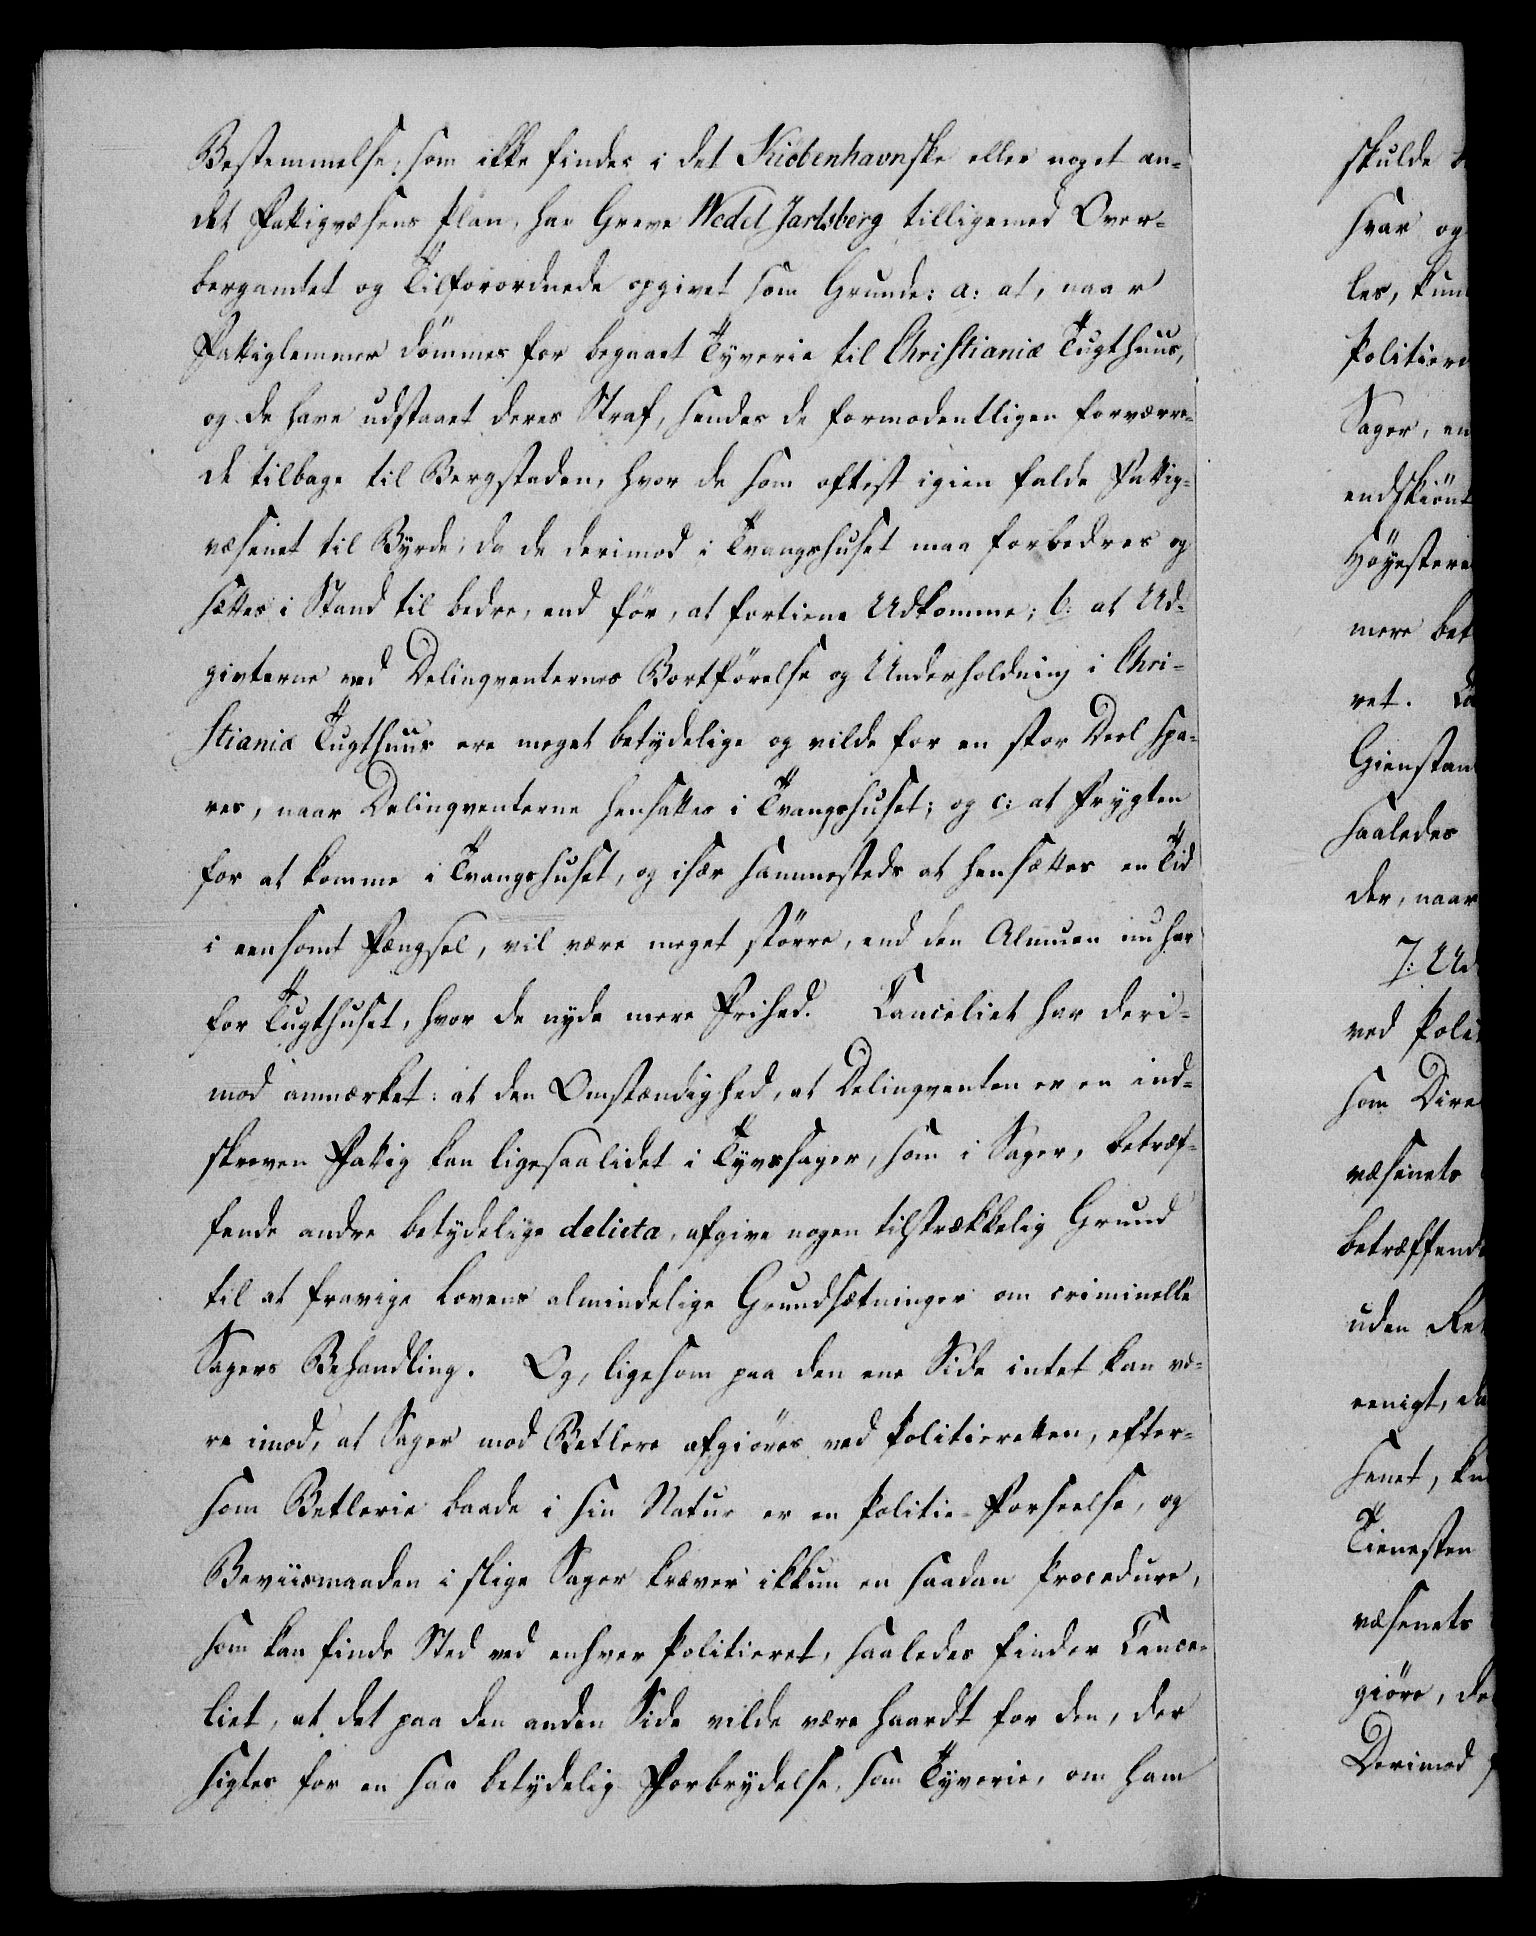 Bestemmelse, som ikke findes i det Kiöbenhavnske eller noget an-
det Fattigvæsens Plan, har Greve Wedel Jarlsberg tilligemed Over-
bergamtet og Tilforordnede opgivet som Grunde: a: at, naar
Fattiglemmer dömmes for begaaet Tyverie til Christianiæ Tugthuus,
og de have udstaaet deres Straf, sendes de formodentligen forværre-
de tilbage til Bergstaden, hvor de som oftest igien falde Fattig-
væsenet til Byrde, da de derimod i Tvangshuset maa forbedres og
sættes i Stand til bedre, end för, at fortiene Udkomme; b: at Ud-
givterne ved Delinqventernes Bortförelse og Underholdning i Chri-
stianiæ Tugthuus ere meget betydelige og vilde for en stor Deel spa-
res, naar Delinqventerne hensattes i Tvangshuset; og c: at Frygten
for at komme i Tvangshuset, og især sammesteds at hensættes en Tid
i eensomt Fængsel, vil være meget större, end den Almuen nu har
for Tugthuset, hvor de nyde mere Frihed. Canceliet har deri-
mod anmærket: at den Omstændighed, at Delinqventen er en ind-
skreven Fattig kan ligesaalidet i Tyvssager, som i Sager, betræf-
fende andre betydelige delicta, afgive nogen tilstrækkelig Grund
til at fravige Lovens almindelige Grundsætninger om criminelle
Sagers Behandling. Og, ligesom paa den ene Side intet kan væ-
re imod, at Sager mod Betlere afgiöres ved Politieretten, efter-
som Betlerie baade i sin Natur er en Politie-Forseelse, og
Beviismaaden i slige Sager kræver ikkun en saadan Procedure,
som kan finde Sted ved enhver Politieret, saaledes finder Cance-
liet, at det paa den anden Side vilde være haardt for den, der
sigtes for en saa betydelig Forbrydelse, som Tyverie, om ham
skulde
svar og
les, kun
Politiere
Sager, en
endskiönt
Höyestere
mere bet
ret.
Gienstan
saaledes
der, naar
7: Ud
ved Poli
som Dire
væsenets
betræffend
uden Ret
eenigt, da
senet,
Tienesten
væsenets
giöre, de
Derimod